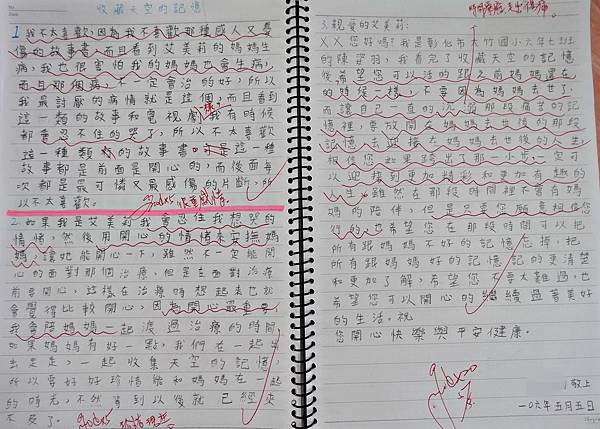 收藏天空的記憶
1.我不太喜歡,因為我不喜歡那種感人又憂
傷的故事書,而且看到艾美莉的媽媽生
病,我也很害怕我的媽媽也會生病,
而且那個病,不一定會治的好,所以
我最討厭的病情就是這個,而且看到
這一類的故事和電視劇,我有時候
都會忍不住的哭了,所以不太喜歡
這一種類的故事書,可是這一種
故事都是前面是開心的,而後面每
次都是最可憐又最感傷的片斷,所
以不太喜歡。
2.如果我是艾美莉我會忍住我想哭的
情緒,然後用開心的情緒來安撫媽
媽,讓她能開心一下,雖然不一定能開
心的面對那個治療,但是在面對治療
前要開心,這樣在治療時想起來也就
會覺得比較開心,因為開心最重要,
我會陪媽媽一起渡過治療的時間
如果媽媽有好一點,我們在一起出
去走走,一起收集天空的記憶,
所以要好好珍惜能和媽媽在一起
的時光,不然等到以後就已經來
不及了。
3.親愛的艾美莉:
XX您好嗎?我是彰化市大竹國小六年七班
的陳羽,我看完了收藏天空的記憶
後,希望您可以活的跟之前媽媽還在
的時候一樣,不要因為媽媽去世了,
而讓自己一直的沉溺那段痛苦的記
憶裡,要放開在媽媽去世後的那段
記憶,去迎接在媽媽去世後的人生,
相信您如果跨出了那一小步,一定可
以迎接到更加精彩和更加有趣的
人生,雖然在那段時間裡不會有媽
媽的陪伴,但是只要您願意相信您
得的,也希望您在那段時間可以把
所有跟媽媽不好的記憶忘掉,把
所有跟媽媽好的記憶記的更清楚
和更加了解,希望您不要太難過,也
希望您可以開心的繼續過著美好
的生活。祝
您開心快樂與平安健康。
敬上
一0六年五月五日